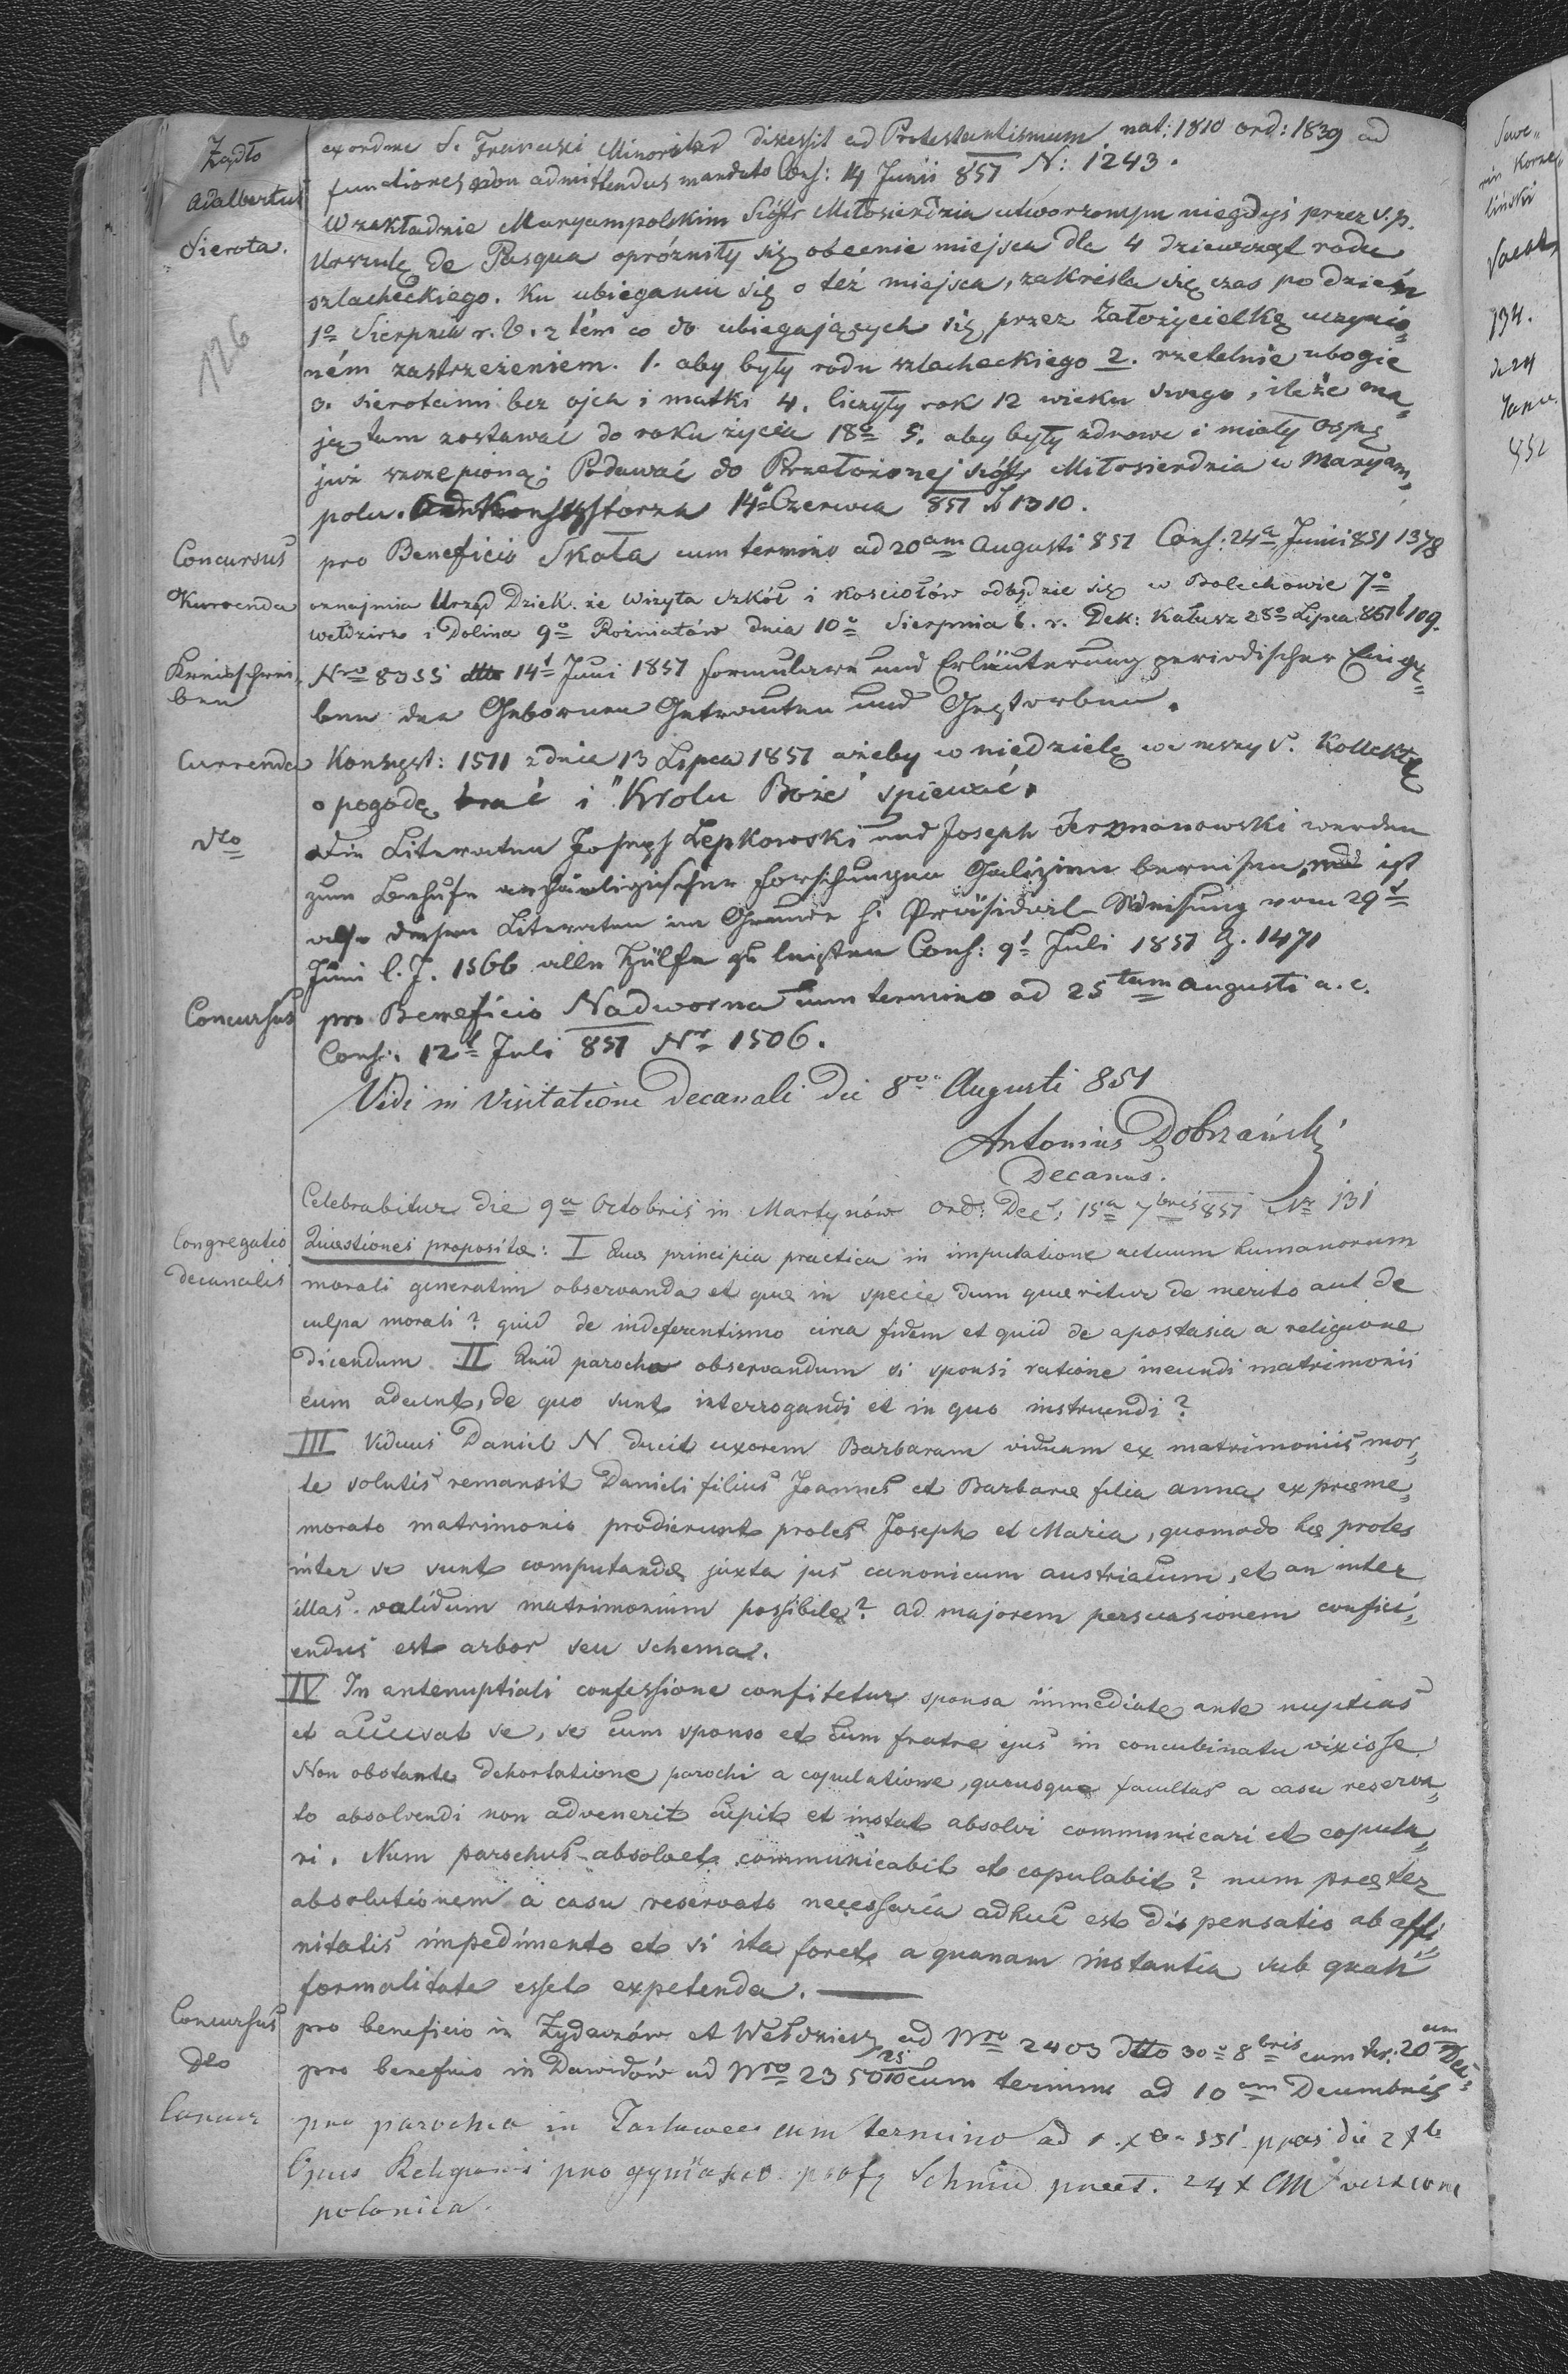 Żądło
Adalbertus
ex ordine S. Francisci Minoritar discessit ad Protestantismum nat: 1810 ord: 1839 ad
functiones non admittendus mandato Cons: 14 Junii 851 N: 1243.
Sierota.
W zakładzie Maryampolskim Sióstr Miłosierdzia utworzonym niegdyś przez ś. p.
Urszulę de Pasqua opróżniły się obecnie miejsca dla 4 dziewcząt rodu
szlacheckiego. Ku ubieganiu się o też miejsca, zakreśla się czas po dzień
1o Sierpnia r. b. z tém co do ubiegających się przez Założycielkę uczynio„
ném zastrzeżeniem. 1. aby były rodu szlacheckiego 2. rzetelnie ubogie
3. sierotami bez ojca i matki 4. liczyły rok 12 wieku swego, ileże ma„
ją tam zostawać do roku życia 18o 5. aby były zdrowe i miały ospę
już szczepioną; Podawać do Przełożonej sióstr Miłosierdzia w Maryam„
polu. Od Konsystorza 14o Czerwca 851 N 1310.
126
Concursus
pro Beneficio Skała cum termino ad 20am Augusti 851 Cons: 24a Junii 851 1378
Kurrenda
oznajmia Urząd Dziek. że Wizyta szkół i kościołów odbędzie się w Bolechowie 7o
Wełdzirz i Dolina 9o Rożniatów dnia 10o Sierpnia b. r. Dek: Kałusz 28o Lipca 851 l 109.
Kreisschrei„
ben
Nro 8355 dtto 14t Juni 1851 Formulare und Erläuterung periodischer Einga„
ben der Gebornen Getrauten und Gestorbenen.
Currenda
Konsyst: 1511 z dnia 13 Lipca 1851 ażeby w niedzielę we mszy ś. Kollektę
o pogodę brać i "Krolu Boże" spiewać.
dto
Die Literaten Joseph Łepkowski und Joseph Jerzmanowski werden
zum Behufe archäologischer Forschungen Galizien bereisen, ist
also diesen Literaten im Grunde h. Präsidial-Weisung vom 29t
Juni l. J. 1566 alle Hülfe zu leisten Cons: 9t Juli 1851 Z. 1471
Concursus
pro Beneficio Nadworna cum termino ad 25tam Augusti a. c.
Cons: 12t Juli 851 Nr 1506.
Vidi in Visitatione decanali die 8va Augusti 851
Antonius Dobrzański
Decanus.
Celebrabitur die 9a Octobris in Martynów Ord: Dec: 15a 7bris 851 Nr 131
Congregatio
decanalis
Quæstiones propositæ: I Quæ principia practica in imputatione actuum humanorum
morali generatim observanda et quæ in specie dum quæritur de merito aut de
culpa morali? quid de indeferentismo circa fidem et quid de apostasia a religione
dicendum II Quid parocho observandum si sponsi ratione ineundi matrimonii
eum adeunt, de quo sunt interrogandi et in quo instruendi?
III Viduus Daniel N ducit uxorem Barbaram viduam ex matrimoniis mor„
te solutis remansit Danieli filius Joannes et Barbaræ filia Anna, ex præme„
morato matrimonio prodierunt proles Joseph et Maria, quomodo hæ proles
inter se sunt computandæ juxta jus canonicum austriacum, et an inter
illas validum matrimonium possibile? ad majorem persuasionem confici„
endus est arbor seu schema.
IV In antenuptiali confessione confitetur sponsa immediate ante nuptias
et accusat se, se cum sponso et cum fratre ejus in concubinatu vixisse.
Non obstante dehortatione parochi a copulatione, quousque facultas a casu reserva„
to absolvendi non advenerit cupit et instat absolvi communicari et copula„
ri. Num parochus absolvet communicabit et copulabit? num præter
absolutionem a casu reservato necessaria adhuc est dispensatio ab affi„
nitatis impedimento et si ita foret a quanam instantia sub quali
formalitate esset expetenda.
Concursus
pro beneficio in Żydaczów et Wełdzicz ad Nro 2403 dtto 30o 8bris cum ter. 20am
dto
pro beneficio in Dawidów ad Nro 2350 25/10 cum termino ad 10am Decembris
pro parochia in cum termino ad
Opus Religionis pro gymnasio Schmid 24 x CM versione
polonica.
Seve„
rin Korne„
liński
134.
Janu.
852